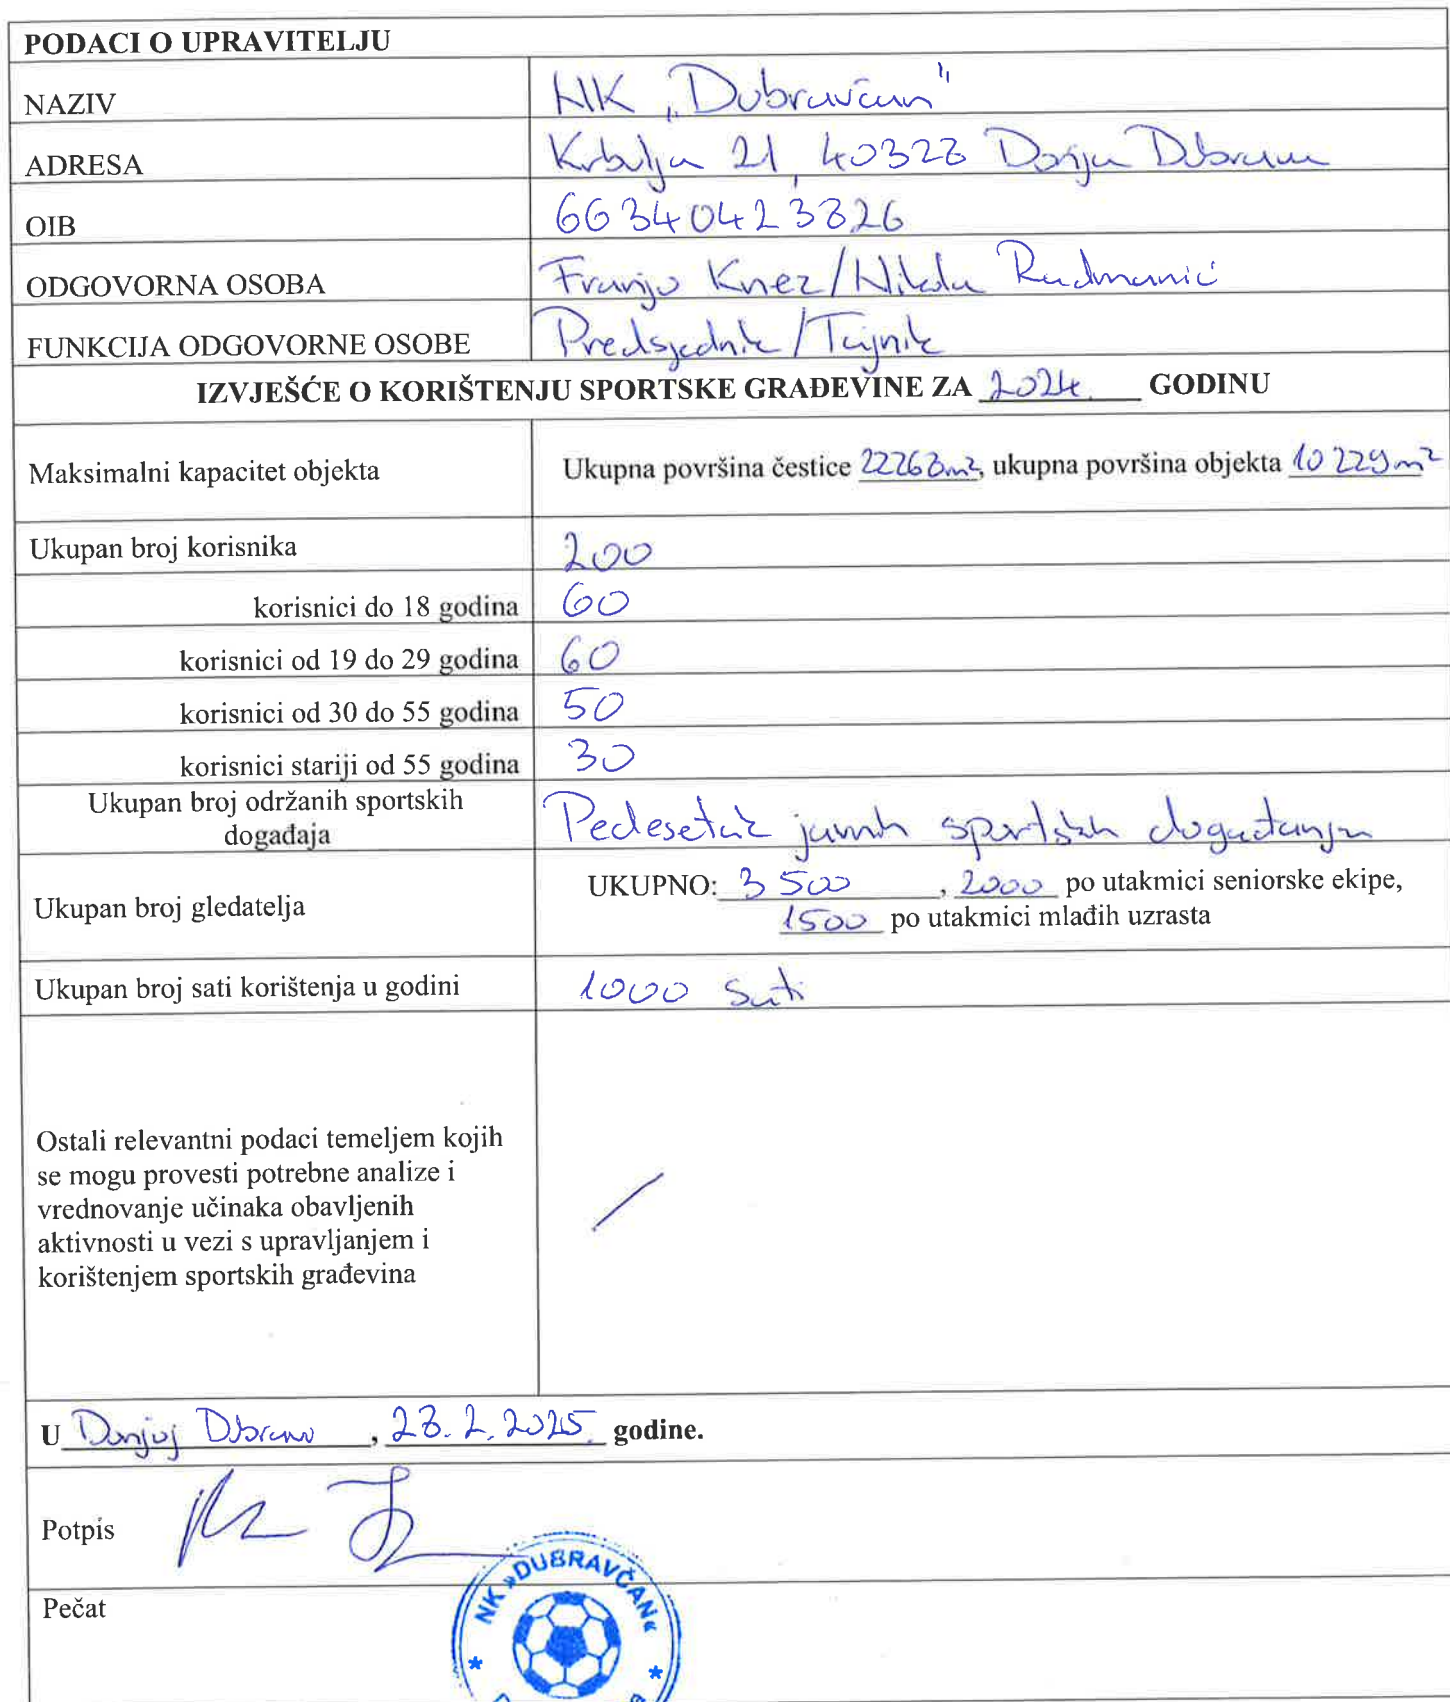 PODACI O UPRAVITELJU
NAZIV NK „Dubravčan"
ADRESA Krbulja 21, 40328 Donja Dubrava
OIB 66340423826
ODGOVORNA OSOBA Franjo Knez/Nikola Radmanić
FUNKCIJA ODGOVORNE OSOBE Predsjednik/Tajnik
IZVJEŠĆE O KORIŠTENJU SPORTSKE GRAĐEVINE ZA 2024. GODINU
Maksimalni kapacitet objekta Ukupna površina čestice 22268m², ukupna površina objekta 10 229m²
Ukupan broj korisnika 200
korisnici do 18 godina 60
korisnici od 19 do 29 godina 60
korisnici od 30 do 55 godina 50
korisnici stariji od 55 godina 30
Ukupan broj održanih sportskih
događaja Pedesetak javnih sportskih događanja
UKUPNO: 3 500, 2000 po utakmici seniorske ekipe,
Ukupan broj gledatelja
1500 po utakmici mlađih uzrasta
Ukupan broj sati korištenja u godini 1000 sati
Ostali relevantni podaci temeljem kojih
se mogu provesti potrebne analize i
vrednovanje učinaka obavljenih
aktivnosti u vezi s upravljanjem i
korištenjem sportskih građevina /
U Donjoj Dubravi, 28.2.2025. godine.
Potpis
Pečat
NK »DUBRAVČAN«